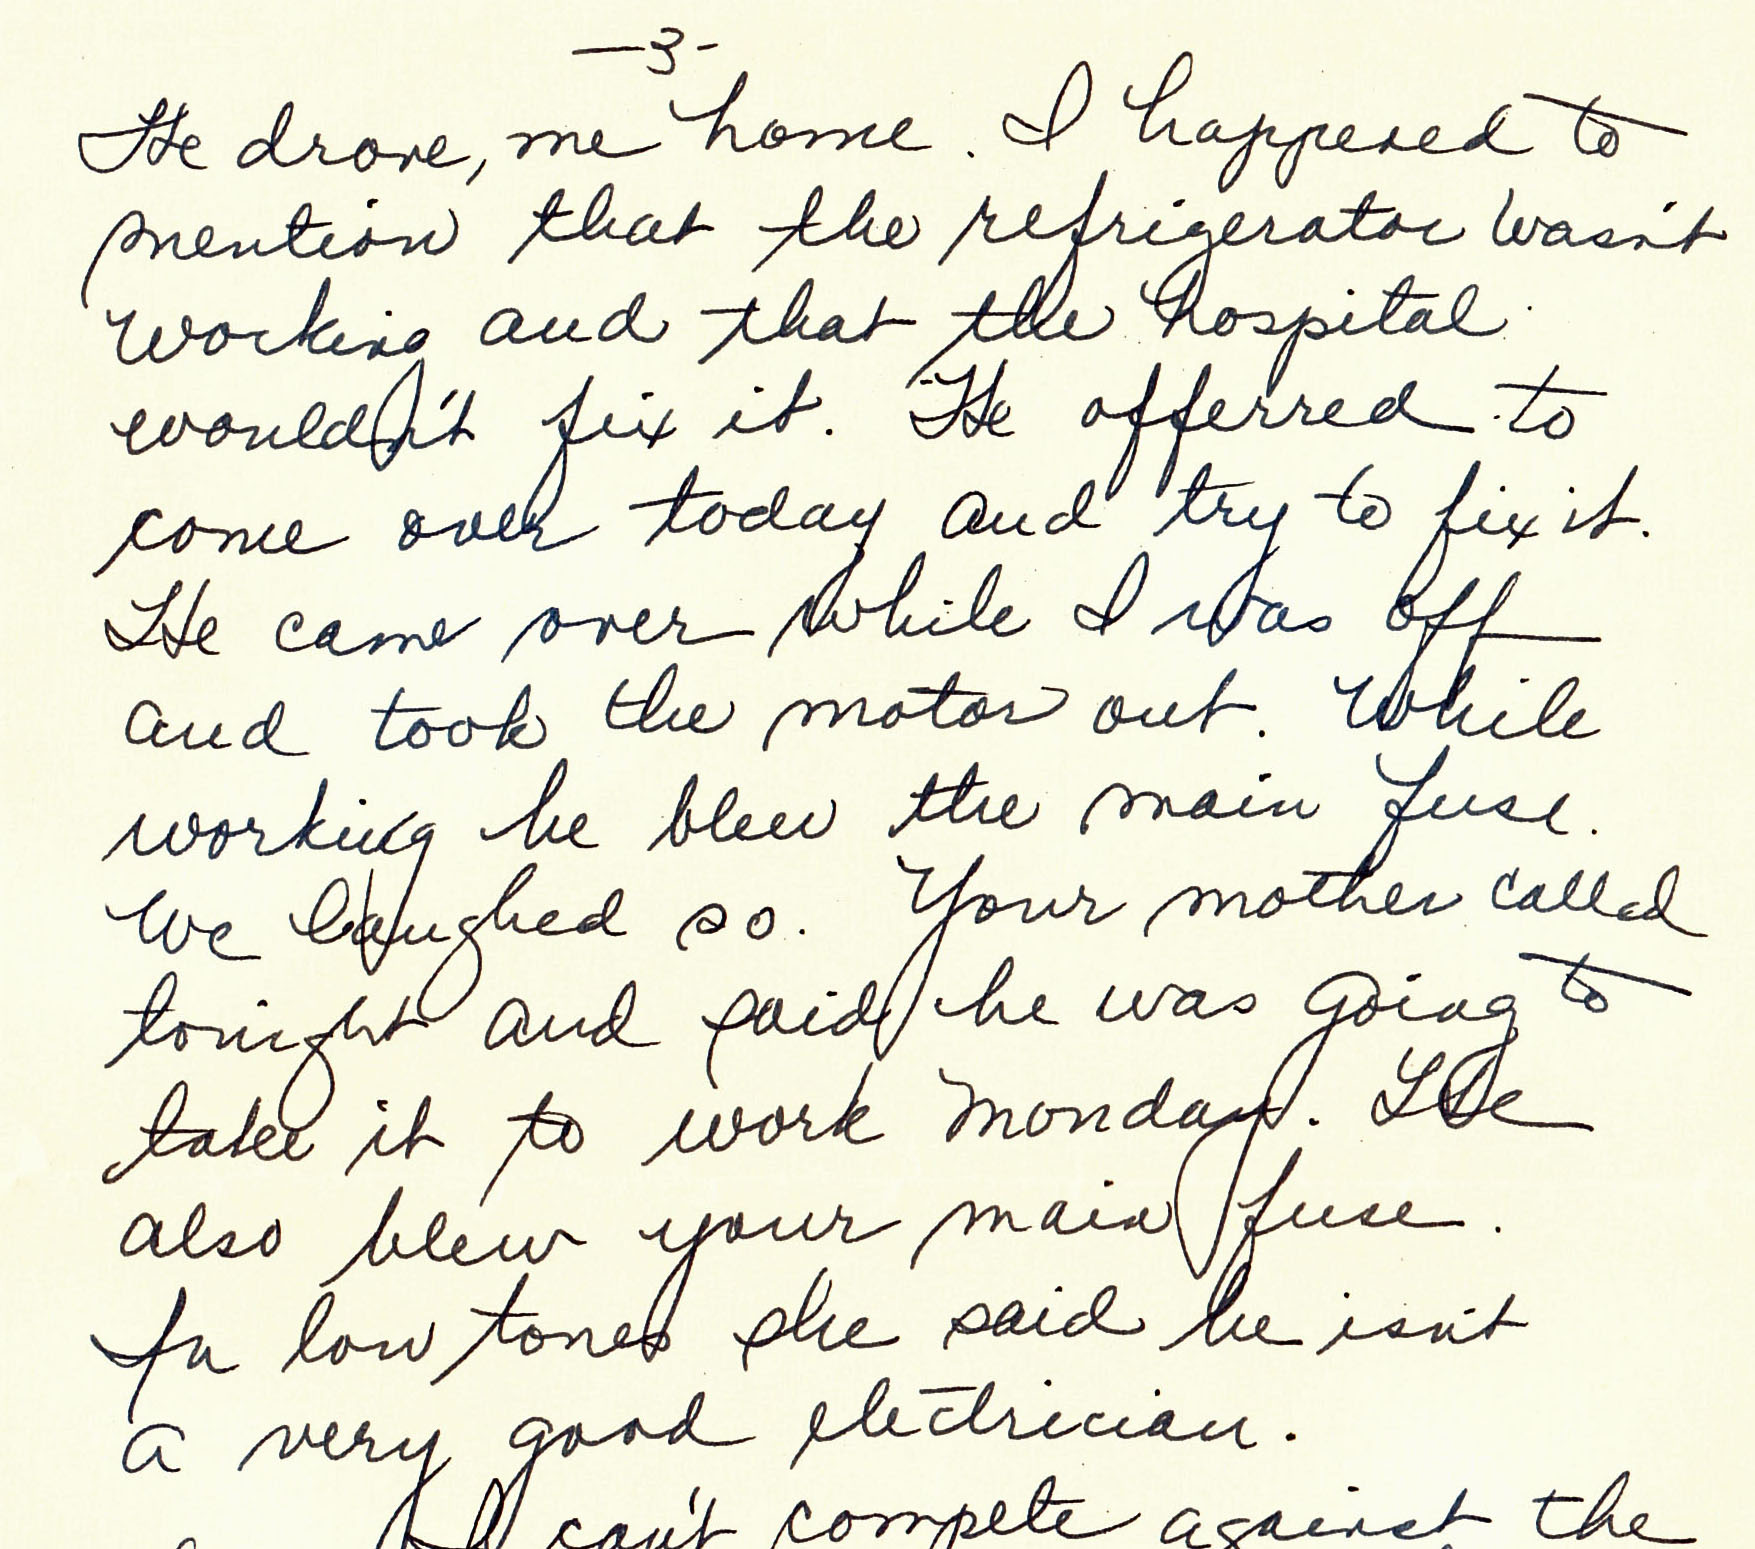 —3-
He drove, me home. I happened to
mention that the refrigerator wasn't
working and that the hospital
wouldn't fix it. He offerred to
come over today and try to fix it.
He came over while I was off
and took the motor out. While
working he blew the main fuse.
We laughed so. Your mother called
tonight and said he was going to
take it to work Monday. He
also blew your main fuse.
In low tones she said he isn't
a very good electrician.
I can't compete against the